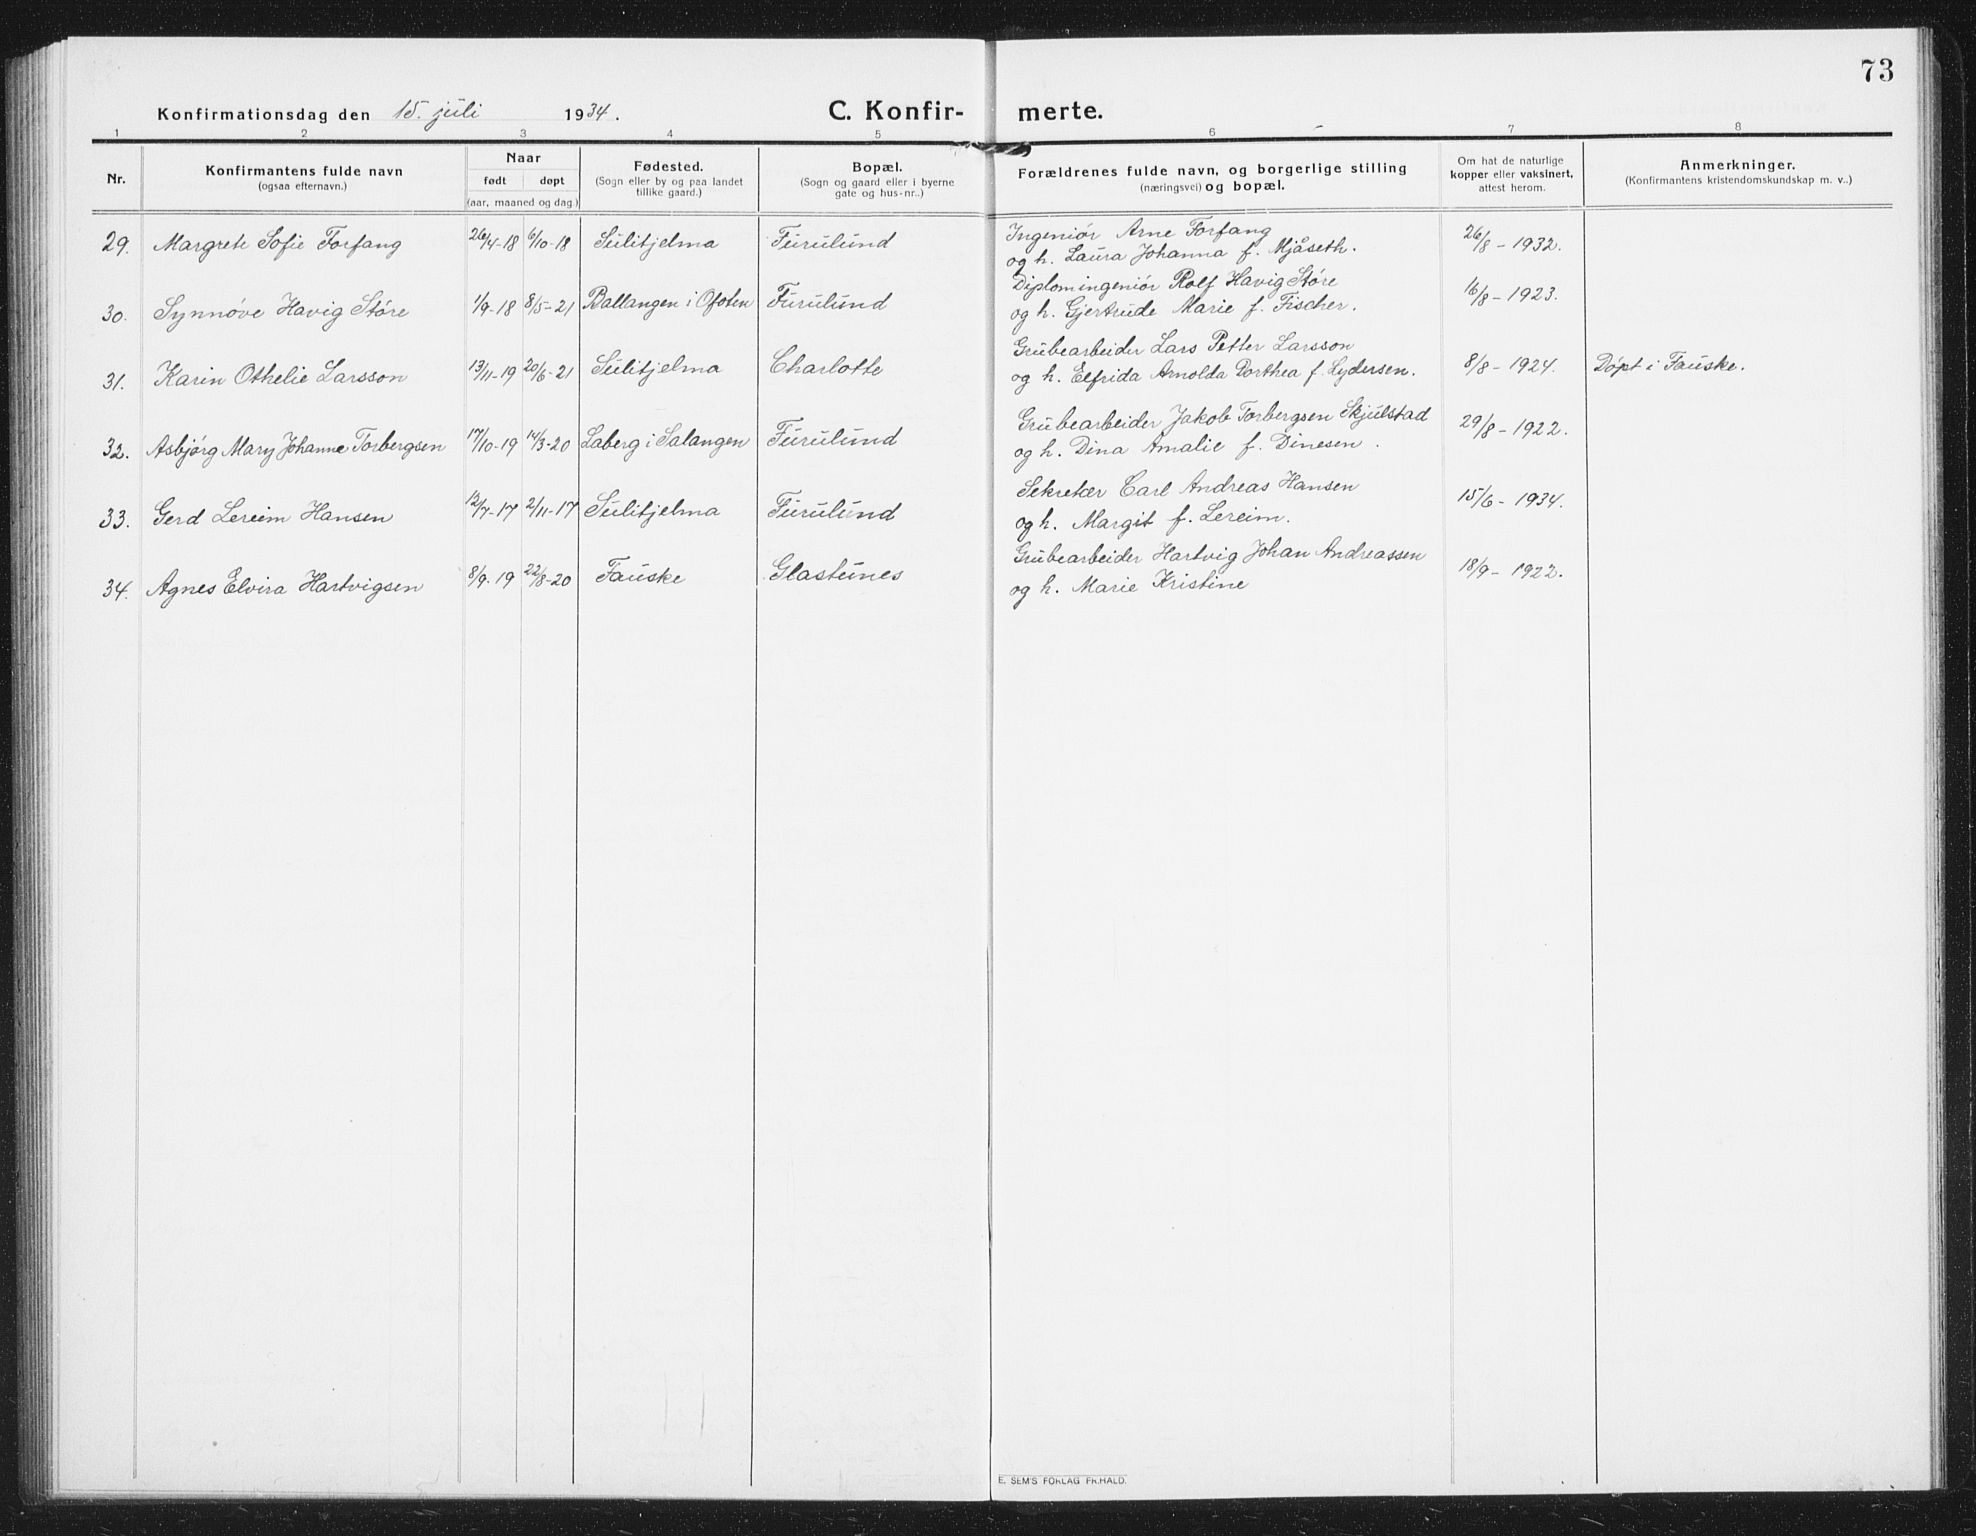 73
Konfirmationsdag den 15. juli 1934.
C. Konfir- merte.
1 2 3 4 5 6 7 8
Nr.
Konfirmantens fulde navn
(ogsaa efternavn.)
Naar
født døpt
(aar, maaned og dag.)
Fødested.
(Sogn eller by og paa landet
tillike gaard.)
Bopæl.
(Sogn og gaard eller i byerne
gate og hus-nr..)
Forældrenes fulde navn, og borgerlige stilling
(næringsvei) og bopæl.
Om hat de naturlige
kopper eller vaksinert,
attest herom.
Anmerkninger.
(Konfirmantens kristendomskundskap m. v..)
29. Margrete Sofie Torfang 26/4-18 6/10-18 Sulitjelma Furulund Ingeniør Arne Torfang 26/8-1932.
og h. Laura Johanna f. Mjåseth.
30. Synnøve Havig Støre 1/9-18 8/5-21 Ballangen i Ofoten Furulund Diplomingeniør Rolf Havig Støre 16/8-1923.
og h. Gjertrude Marie f. Fischer.
31. Karin Othelie Larsson 13/11-19 20/6-21 Sulitjelma Charlotte Grubearbeider Lars Petter Larsson 8/8-1924. Døpt i Fauske.
og h. Elfrida Arnolda Dorthea f. Lydersen.
32. Asbjørg Mary Johanne Torbergsen 17/10-19 14/3-20 Laberg i Salangen Furulund Grubearbeider Jakob Torbergsen Skjulstad 29/8-1922.
og h. Dina Amalie f. Dinesen.
33. Gerd Lereim Hansen 12/7-17 2/11-17 Sulitjelma Furulund Sekretær Carl Andreas Hansen 15/6-1934.
og h. Margit f. Lereim.
34. Agnes Elvira Hartvigsen 8/9.19 22/8-20 Fauske Glastunes Grubearbeider Hartvig Johan Andreassen 18/9-1922.
og h. Marie Kristine
E. SEM'S FORLAG FR.HALD.